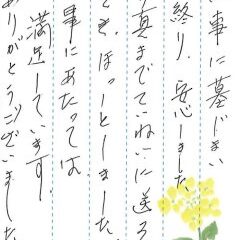 い事に墓じまい
終り、安心しました
真までていねいに送ろ
とき、ほっとしました。
事にあたっては
満足しています。
ありがとうございました